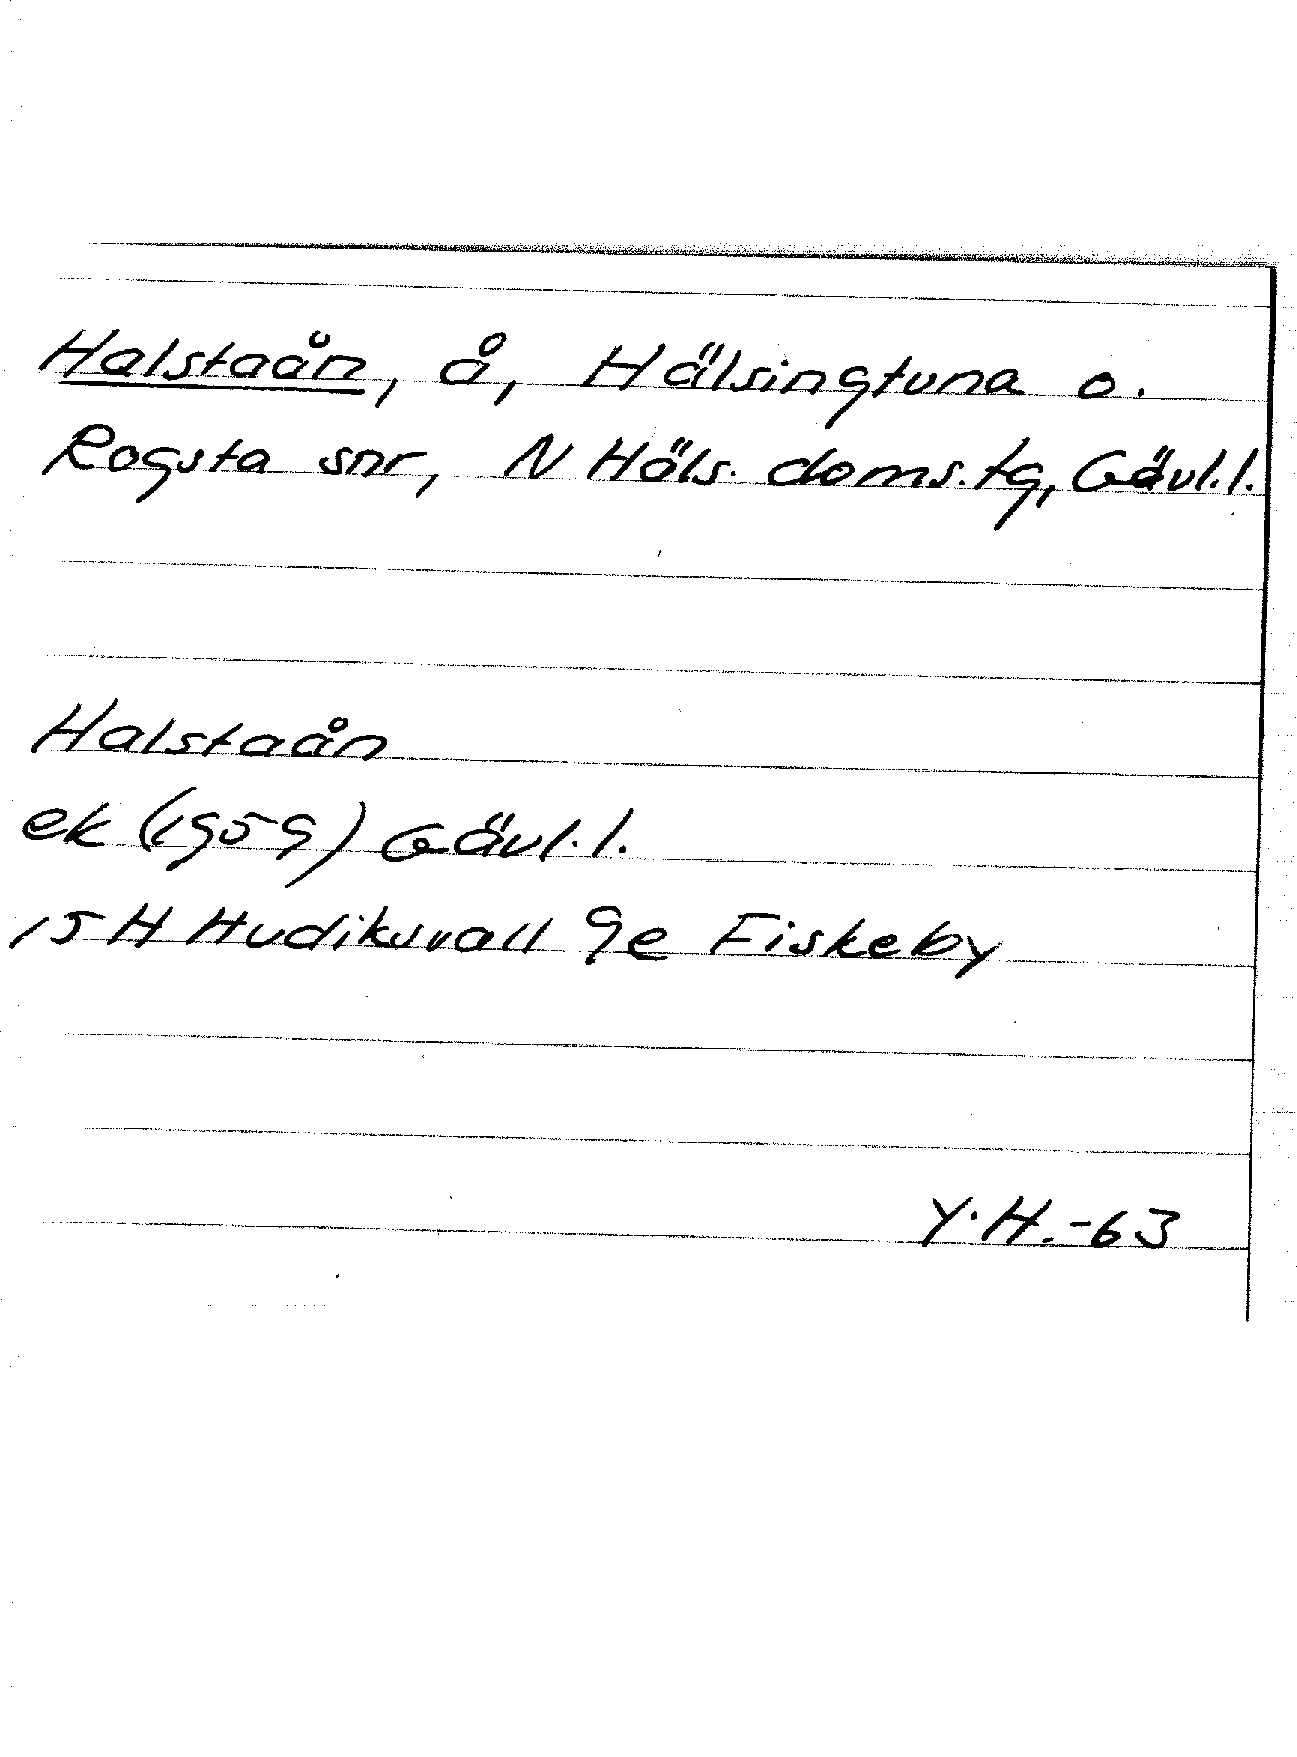 Halstaån, å, Hälsingtuna o.
Rogsta snr, N Häls. doms.tg, Gävl.l.
Halstaån
ek (1959) Gävl.l.
15 H Hudiksvall 9e Fiskeby
Y.H.-63